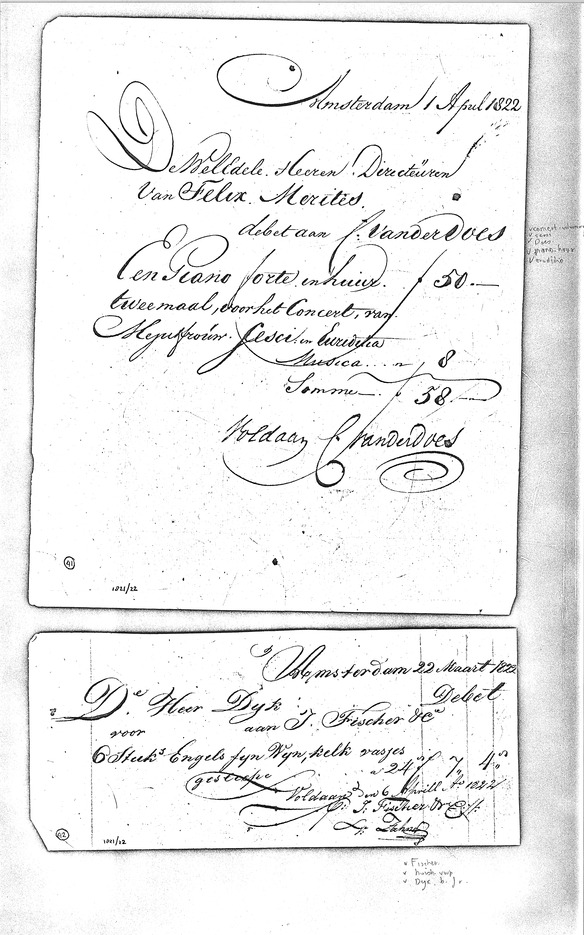 Amsterdam 1 April 1822
De WelEdele Heeren Directeüren
Van Felix Meritis.
debet aan C. VanderDoes
Een Piano forte in huur. f 50.—
tweemaal, voor het Concert, van
Mejuffroúw Cesci. en Euridica
Musica.... " 8
Somme f 58.—
Voldaan C VanderDoes
41
1821/22
Amsterdam 22 Maart 1822
De Heer Dyk Debet
voor aan J. Fischer &Co
6 Stuks Engels fyn Wyn, kelk vasjes
geslepe a 24 f 7 " 4 "
Voldaan den 6 Aprill Ao 1822
J. Fischer & C
42
1821/22
v Fischer
v Dyk, b. J v.